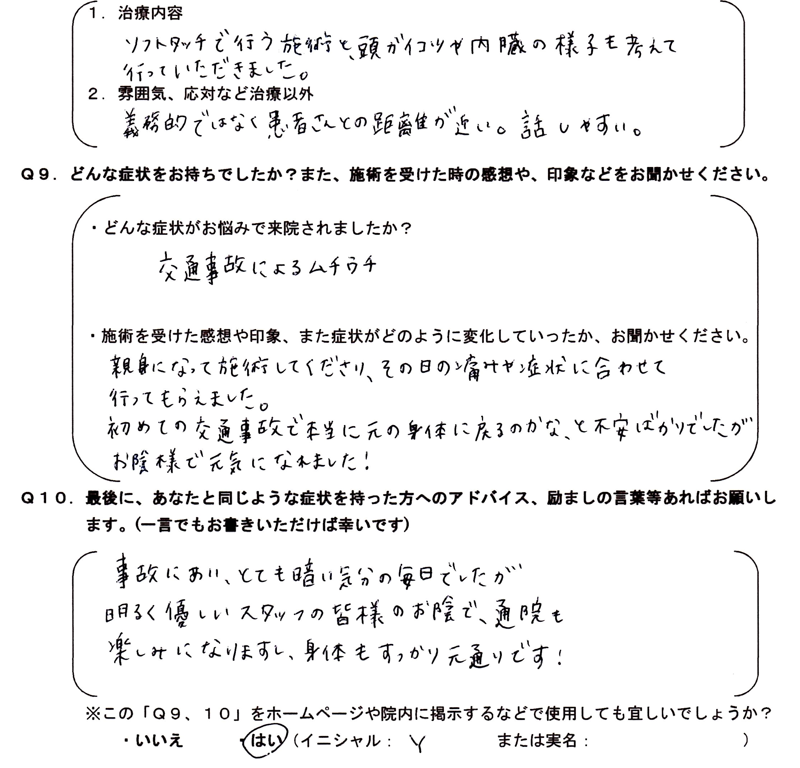 1．治療内容
ソフトタッチで行う施術と、頭ガイコツや内臓の様子も考えて
行っていただきました。
2．雰囲気、応対など治療以外
義務的ではなく患者さんとの距離が近い。話しやすい。
Q9．どんな症状をお持ちでしたか？また、施術を受けた時の感想や、印象などをお聞かせください。
・どんな症状がお悩みで来院されましたか？
交通事故によるムチウチ
・施術を受けた感想や印象、また症状がどのように変化していったか、お聞かせください。
親身になって施術してくださり、その日の痛みや症状に合わせて
行ってもらえました。
初めての交通事故で本当に元の身体に戻るのかな、と不安ばかりでしたが
お陰様で元気になれました！
Q10．最後に、あなたと同じような症状を持った方へのアドバイス、励ましの言葉等あればお願いし
ます。（一言でもお書きいただけば幸いです）
事故にあい、とても暗い気分の毎日でしたが
明るく優しいスタッフの皆様のお陰で、通院も
楽しみになりますし、身体もすっかり元通りです！
※この「Q9、10」をホームページや院内に掲示するなどで使用しても宜しいでしょうか？
・いいえ ・はい（イニシャル： Y または実名： ）